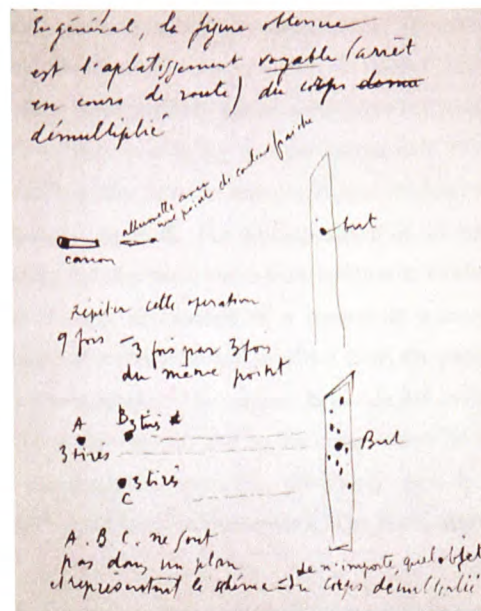 En général, la figure obtenue
est l'aplatissement voyable (arrêt
en cours de route) du corps
démultiplié
allumette avec
une pointe de couleur fraîche
canon
but
Répéter cette opération
9 fois — 3 fois par 3 fois
du même point
A
B 3 tirs
3 tires
3 tirs
C
But
A. B. C. ne sont
pas dans un plan
et représentent le schéma de n'importe quel objet
du corps démultiplié